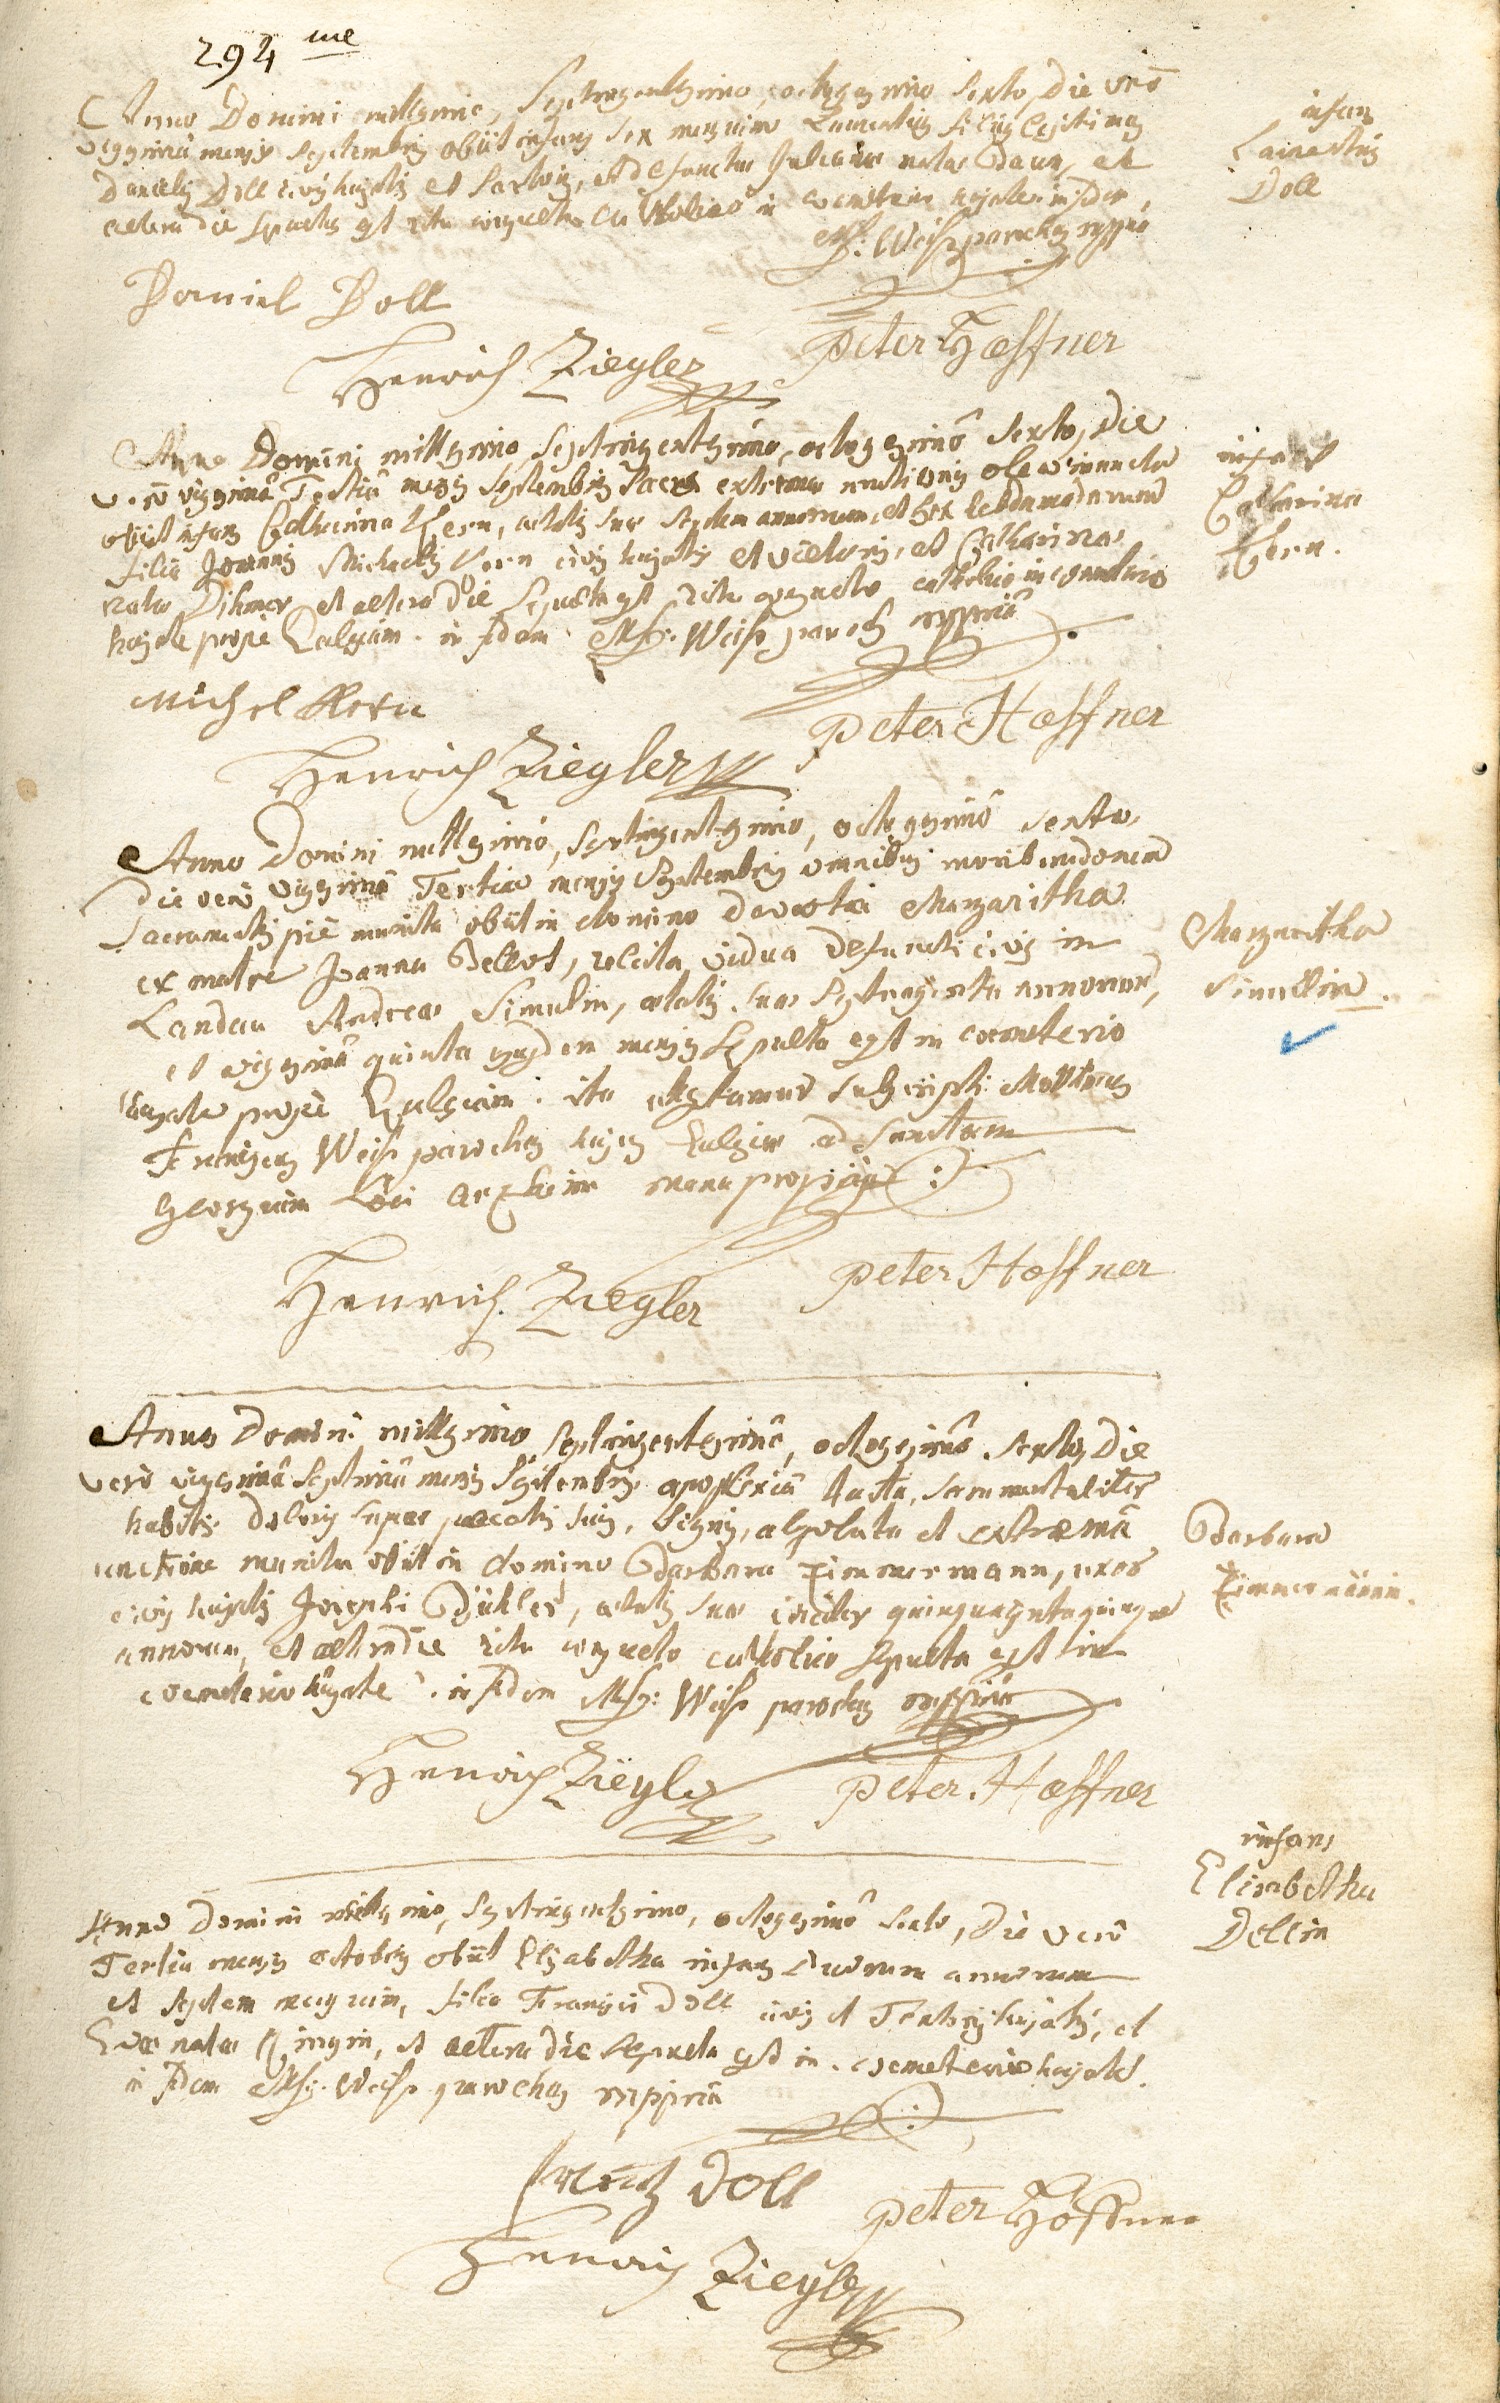 294 me
Anno Domini millesimo, Septingentesimo, octogesimo sexto, die verò
vigesima mensis Septembris obiit infans sex mensium Laurentius filius legitimus
Danielis Doll civis hujatis et sartoris, et defunctae Julianae natae Daun, et
altera die sepultus est ritu consueto catholico in coemeterio hujate. in fidem,
Mf: Weis parochus mppria
infans
Laurentius
Doll
Daniel Doll
Peter Hoeffner
Henrich Ziegler
Anno Domini millesimo Septingentesimo, octogesimô sexto, die
verò vigesimâ Tertiâ mensis Septembris sacro extremae unctionis oleo inuncta
obiit infans Catharina Kern, aetatis suae septem annorum, et sex hebdomadarum
filia Joannis Michaelis Kern civis hujatis et vietoris, et Catharinae
natae Dihmer et altera die sepulta est ritu consueto catholico in coemeterio
hujate prope Ecclesiam. in fidem Mf: Weis paroch mppriâ
infans
Catharina
Kern.
Michel Kern
Peter Hoeffner
Henrich Ziegler
Anno Domini millesimo, Septingentesimo, octogesimô sexto,
die verò vigesimâ Tertia mensis Septembris omnibus moribundorum
Sacramentis piè munita obiit in domino devota Margaritha
ex matre Joanna Bellot, relicta vidua defuncti civis in
Landau Andreae Simulin, aetatis suae Septuaginta annorum,
et vigesimâ quinta ejusdem mensis sepulta est in coemeterio
hujate prope Ecclesiam. ita attestamur subscripti
Franciscus Weis parochus hujus Ecclesiae ad Sanctum
Georgium Loci Arzheim manu propriâ
Margaritha
Simullin.
Henrich. Ziegler
Peter Hoeffner
Anno Domini millesimo Septingentesimô, octogesimô sexto, die
verò vigesimâ Septimâ mensis Septembris apoplexiâ tacta, sacramentaliter
habitis doloris super peccatis suis, signis, absoluta et extremâ
unctione munita obiit in domino Barbara Zimmermann, uxor
civis hujatis Josephi Bühler, aetatis suae circiter quinquaginta quinque
annorum, et altera die ritu consueto catholico sepulta est in
coemeterio hujate. in fidem Mf: Weis parochus mppriâ
Barbara
Zimmermännin.
Henrich Ziegler
Peter. Hoeffner
Anno Domini millesimo, Septingentesimo, octogesimô sexto, die verò
Tertia mensis octobris obiit Elisabetha infans duorum annorum
et septem mensium, filia Francisci Doll civis et Textoris hujatis, et
Evae natae, et altera die sepulta est in coemeterio hujate.
in fidem Mf: Weis parochus mppriâ
infans
Elisabetha
Dollin
Frantz Doll
Peter Höffner
Henrich Ziegler